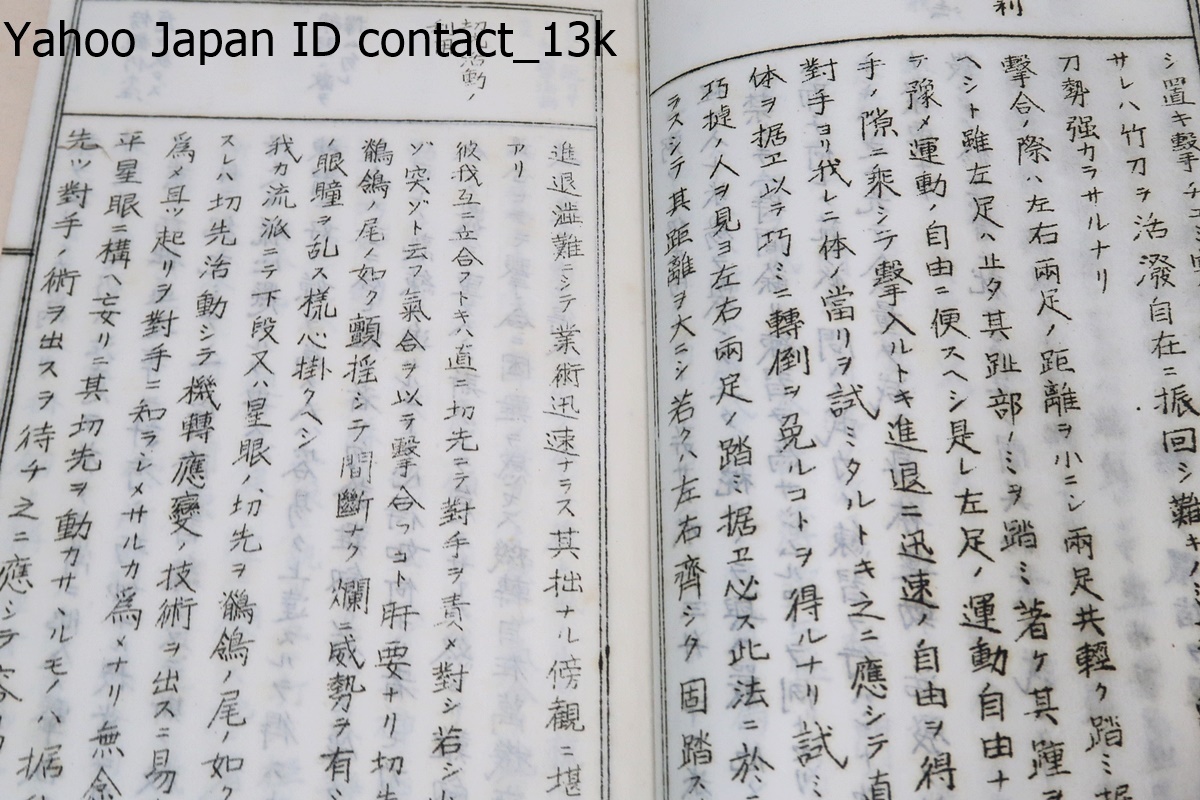 Yahoo Japan ID contact_13k
利
シ置キ撃チ
サレハ竹刀ヲ活潑自在ニ振回シ難キノ
刀勢强カラサルナリ
撃合ノ際ハ左右兩足ノ距離ヲ小ニシ兩足共輕ク踏ミ据
ヘシト雖左足ハ止タ其趾部ノミヲ踏ミ著ケ其踵ヲ
テ豫メ運動ノ自由ニ便スヘシ是レ左足ノ運動自由ナ
手ノ隙ニ乗シテ撃入ルトキ進退ニ迅速ノ自由ヲ得
對手ヨリ我レニ体ノ當リヲ試ミタルトキ之ニ應シテ直
体ヲ据ヱ以テ巧ミニ轉倒ヲ免ルコトヲ得ルナリ試ミ
巧捷ノ人ヲ見ヨ左右兩足ノ踏ミ据ヱ必ス此法ニ於
ラスシテ其距離ヲ大ニシ若クハ左右齊シク固踏ス
活動ノ
進退澁難ニシテ業術迅速ナラス其拙ナル傍觀ニ堪
アリ
彼我互ニ立合フトキハ直ニ切先ニテ對手ヲ責メ對シ若シ
ゾ突ゾト云フ氣合ヲ以テ撃合フコト肝要ナリ切先
鶺鴒ノ尾ノ如ク顫揺シテ間斷ナク爛ニ威勢ヲ有シ
ノ眼瞳ヲ乱ス樣心掛クヘシ
我カ流派ニテ下段又ハ星眼ノ切先ヲ鶺鴒ノ尾ノ如ク
スレハ切先活動シテ機轉應變ノ技術ヲ出スニ易
爲メ且ツ起リヲ對手ニ知ラシメサルカ爲メナリ無念
平星眼ニ構ヘ妄リニ其切先ヲ動カサヽルモノハ据
先ツ對手ノ術ヲ出スヲ待チ之ニ應シテ